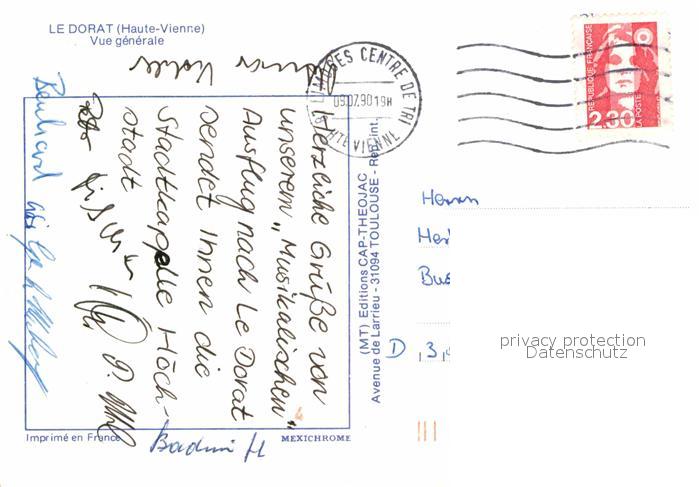 LE DORAT (Haute-Vienne)
Vue générale
Herzliche Grüße von
unserem „Musikalischen"
Ausflug nach Le Dorat
sendet Ihnen die
Stadtkapelle Höch-
stadt
Peter
Bernhard
Imprimé en France
MEXICHROME
(MT) Editions CAP-THEOJAC
Avenue de Larrieu - 31094 TOULOUSE - Rep. int.
LIMOGES CENTRE DE TRI
09.07.90 19H
HTE VIENNE
REPUBLIQUE FRANÇAISE
2,30
LA POSTE
Herrn
D
privacy protection
Datenschutz